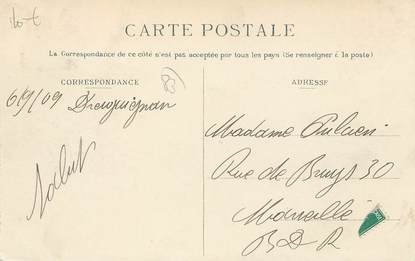 lot
CARTE POSTALE
La Correspondance de ce côté n'est pas acceptée par tous les pays (Se renseigner à la poste)
CORRESPONDANCE
ADRESSE
6/9/09 Draguignan
83
Salut
Madame
Rue de Bruys 30
Marseille
B D R